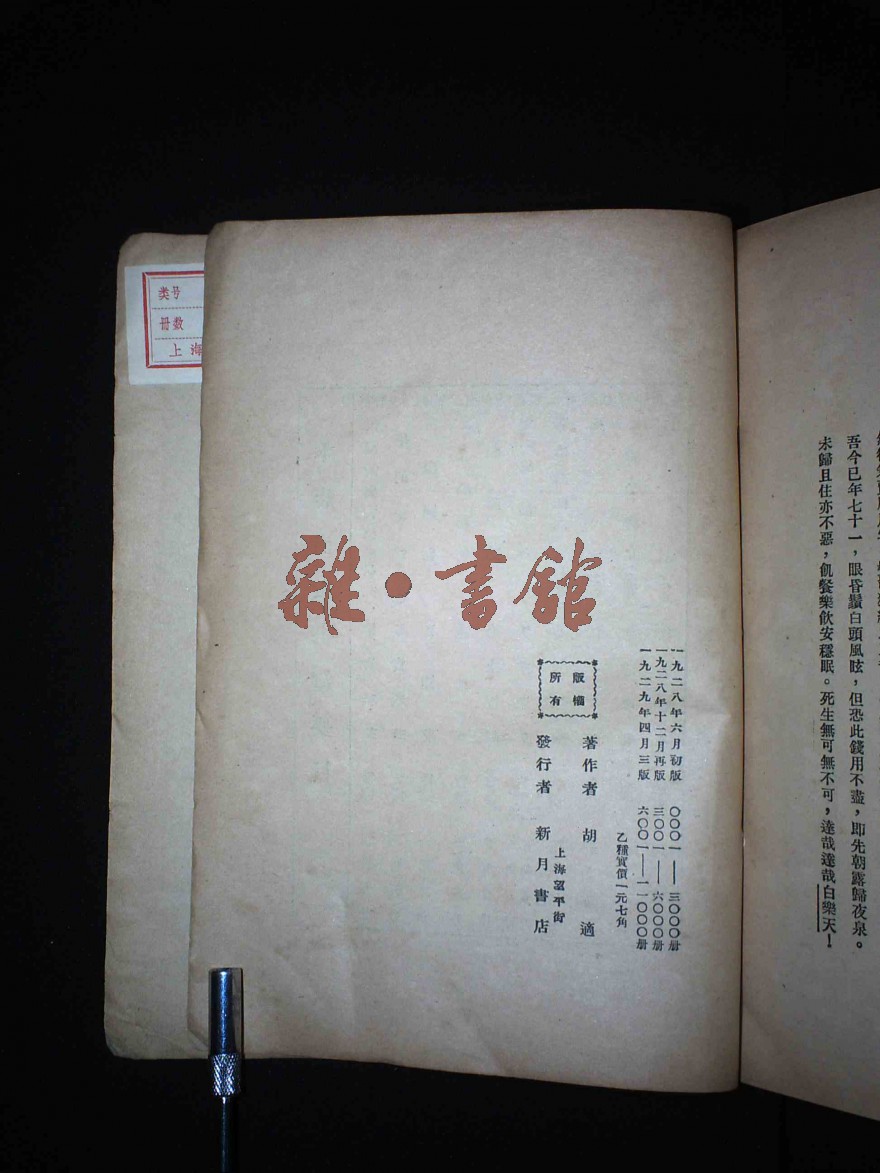 吾今已年七十一，眼昏鬚白頭風眩，但恐此錢用不盡，即先朝露歸夜泉。
未歸且住亦不惡，飢餐樂飲安穩眠。死生無可無不可，達哉達哉白樂天！
一九二八年六月初版　〇〇〇一——三〇〇〇册
一九二八年十二月再版　三〇〇一——六〇〇〇册
一九二九年四月三版　六〇〇一——一一〇〇〇册
乙種實價一元七角
版權
所有
著作者　胡適
上海望平街
發行者　新月書店
雜·書館
类号
冊数
上海